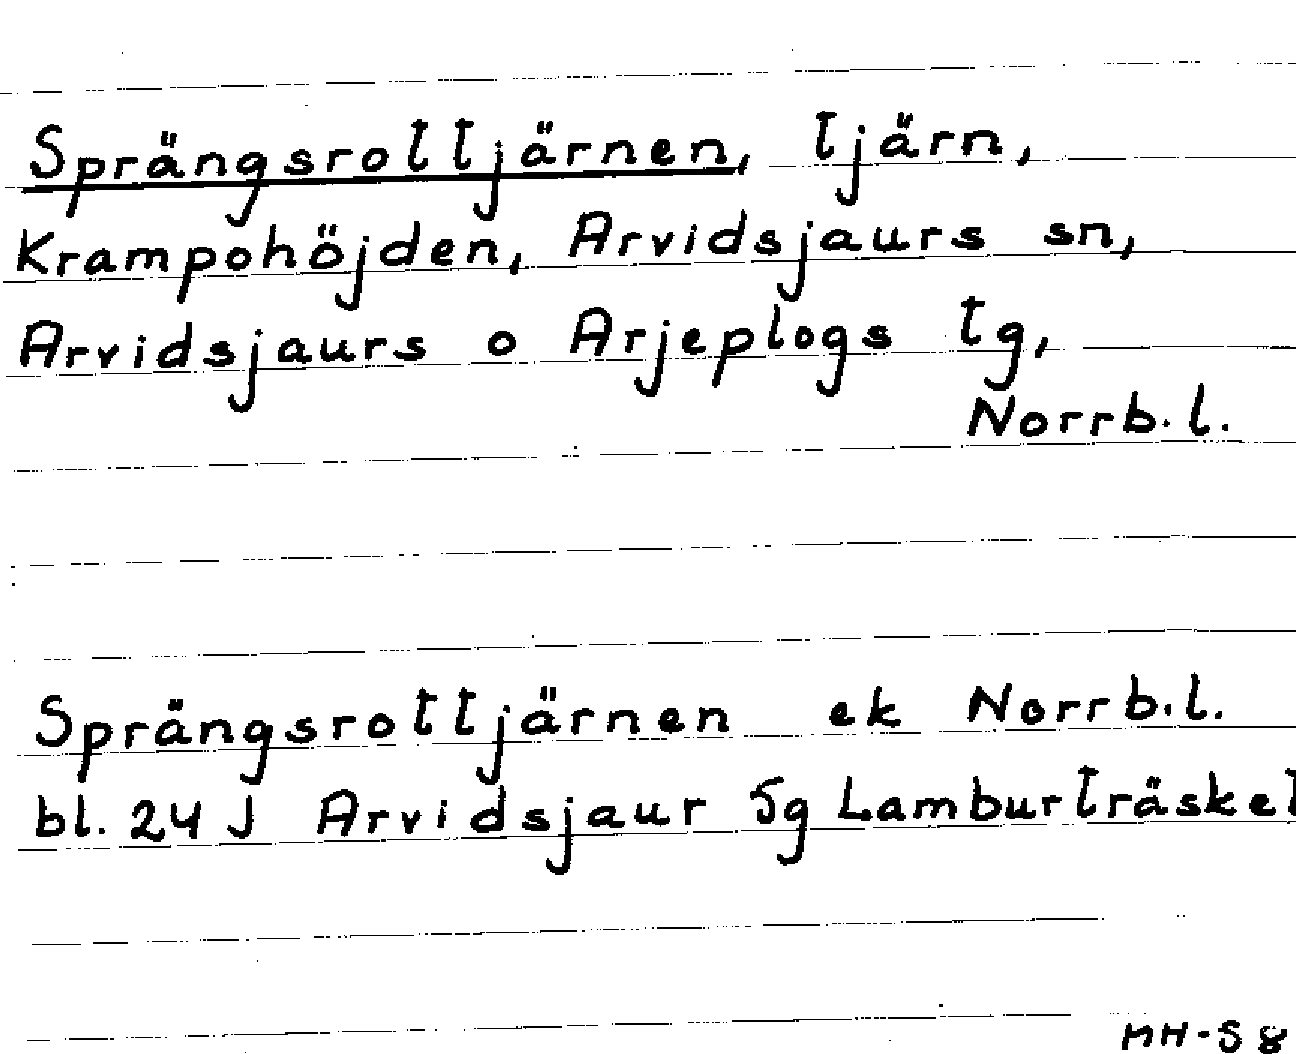 Sprängsrottjärnen, tjärn,
Krampohöjden, Arvidsjaurs sn,
Arvidsjaurs o Arjeplogs tg,
Norrb.l.
Sprängsrottjärnen ek Norrb.l.
bl. 24 J Arvidsjaur 5g Lamburträsket
MH-S 8